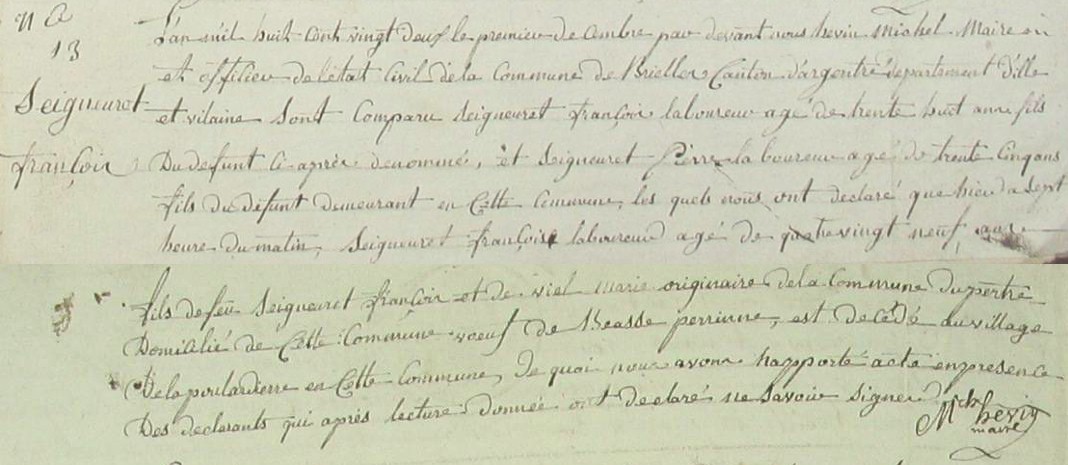 n o
13
Seigneuret
françois
L'an mil huit cent vingt deux le premier decembre par devant nous hevin Michel Maire
et officier de létat Civil dela Commune de Brielles Canton d'argentré departement d'ille
et vilaine Sont Comparu Seigneuret françois laboureur agé de trente huit ans fils
Du defunt Ci après denommé, et Seigneuret Pierre laboureur agé de trente Cinq ans
fils du defunt demeurant en Cette Commune, les quels nous ont declaré que hier a Sept
heure du matin, Seigneuret françois laboureur agé de quatrevingt neuf ans
fils de feu Seigneuret françois et de viel marie originaire dela Commune du pertre
Domicilié de Cette Commune voeuf de Beasse perrinne, est decédé au village
Dela poulardierre en Cette Commune, De quoi nous avons rapporté acte en presence
Des declarants qui après lecture donnée ont declaré ne Savoir Signer
Mchel hevin
maire